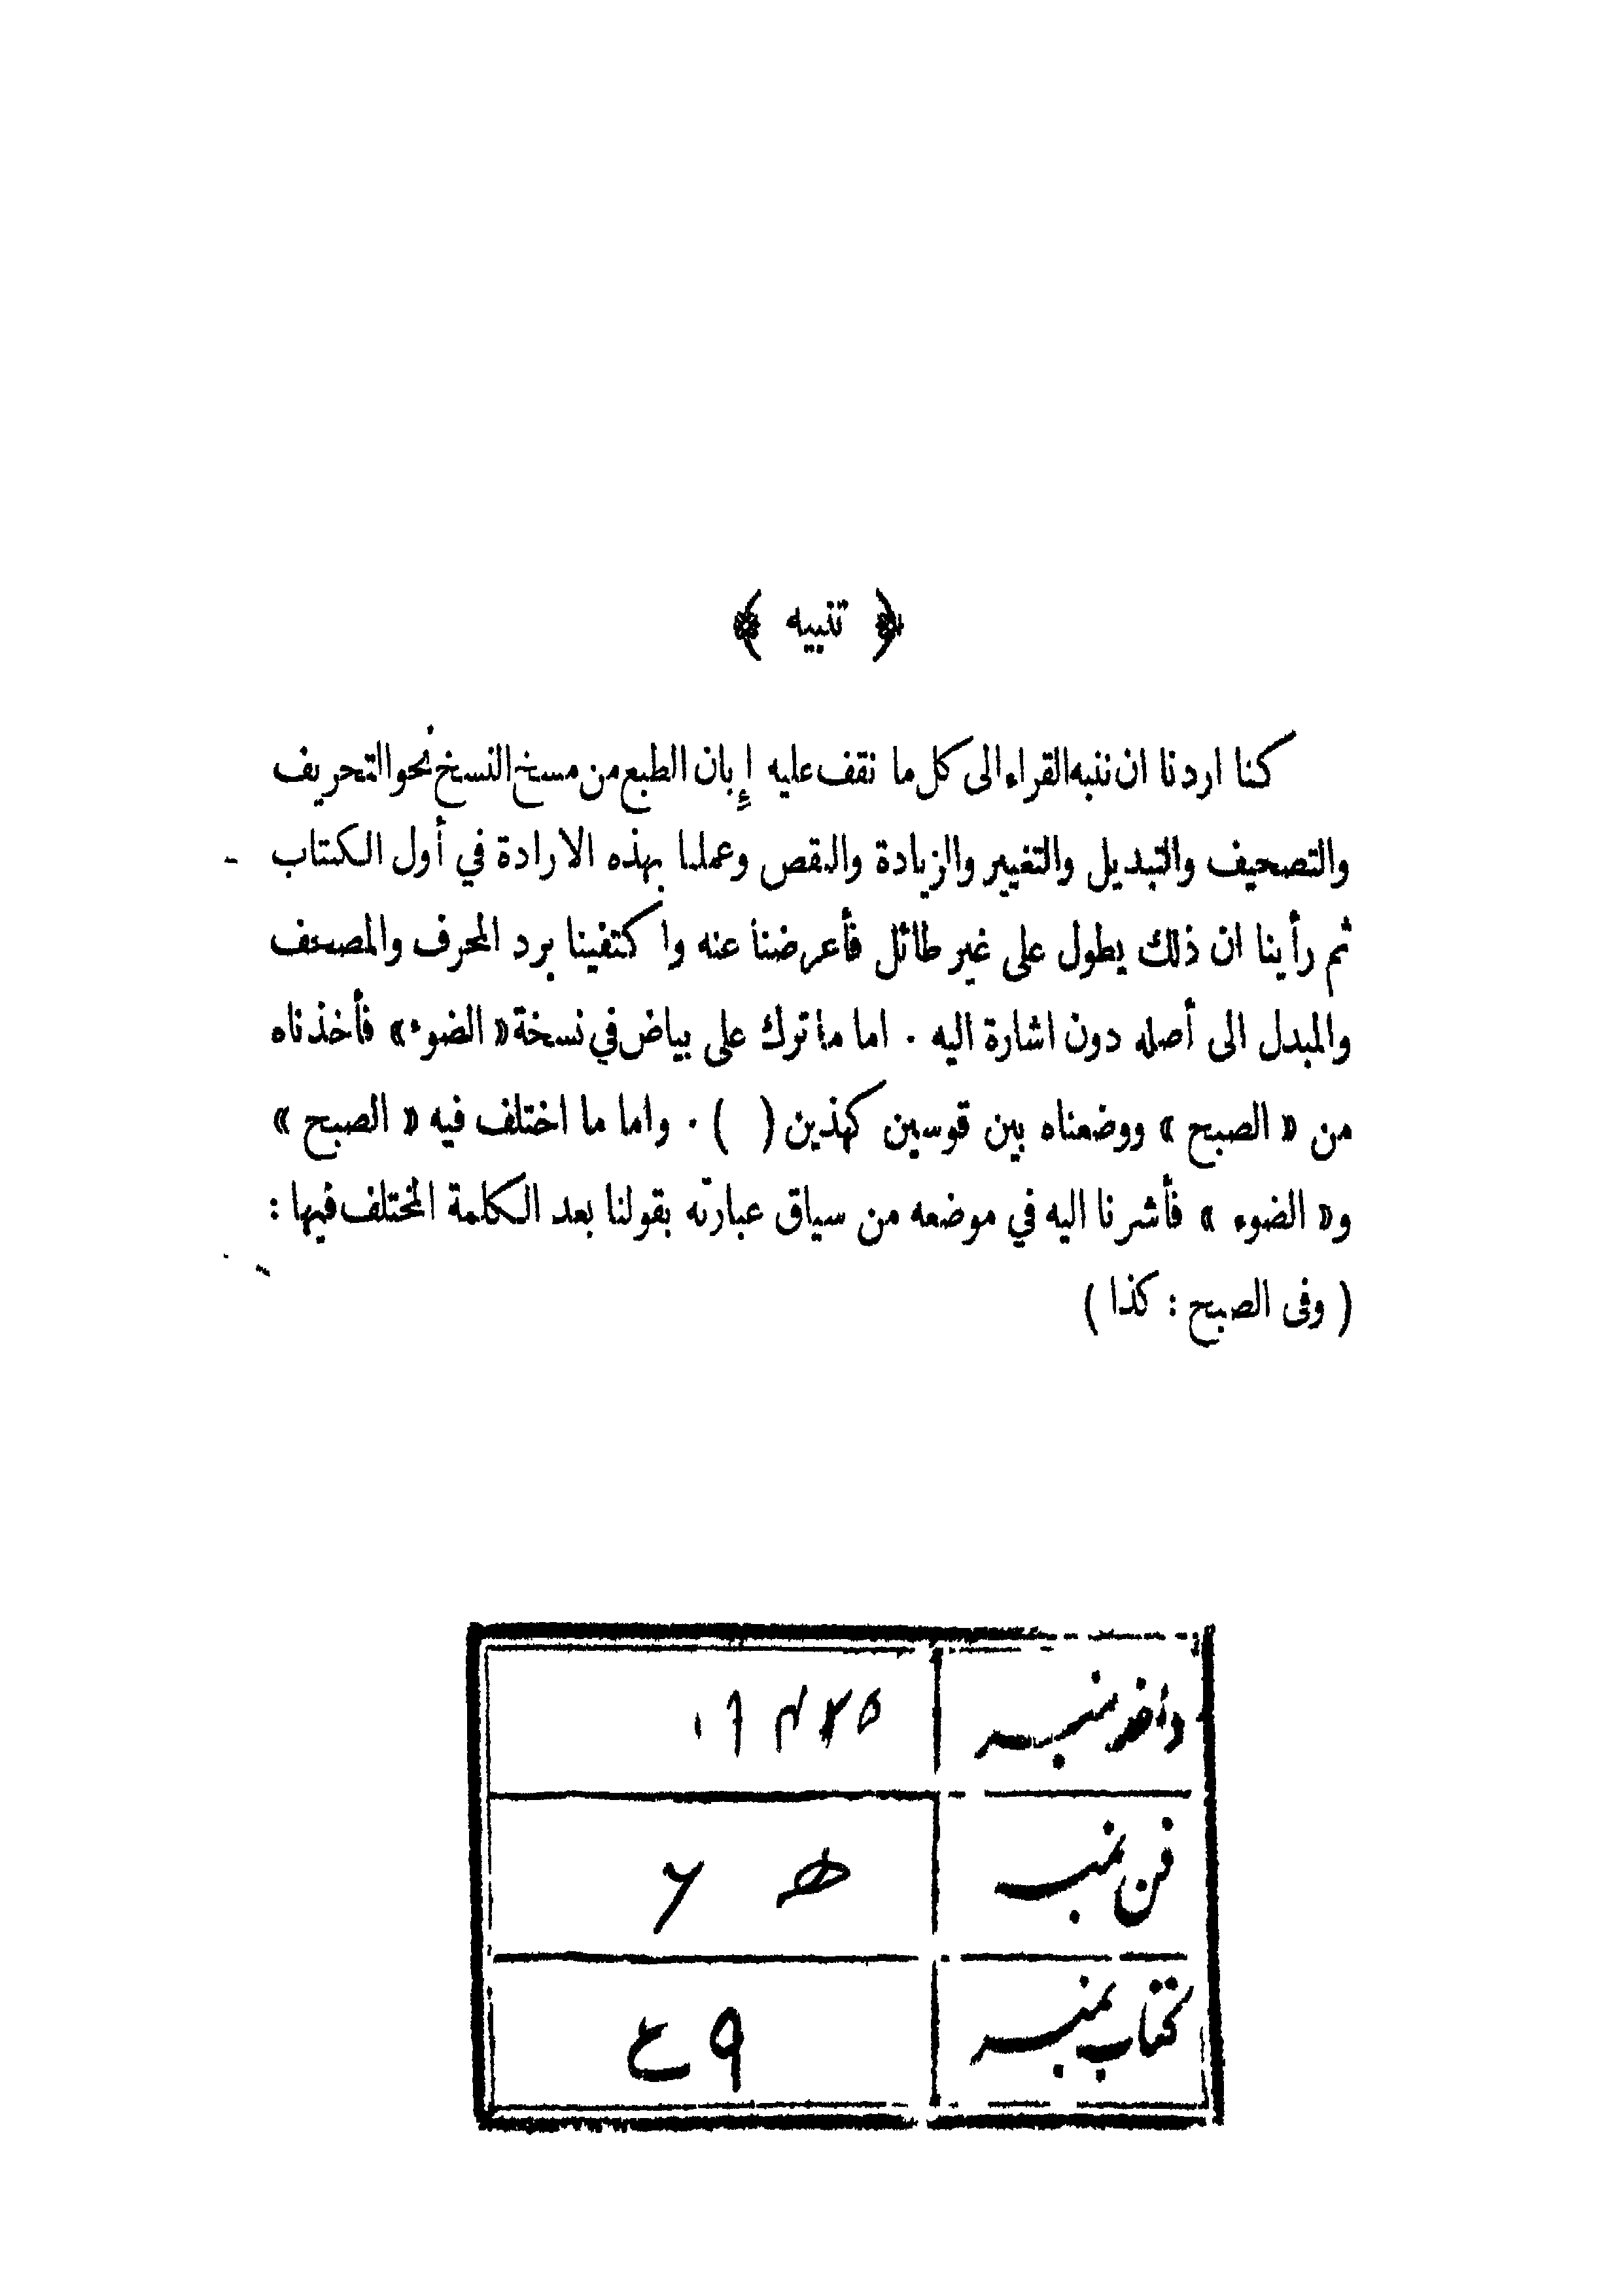 ﴿ تنبيه ﴾
كنا اردنا ان ننبه القراء الى كل ما نقف عليه إبان الطبع من مسخ النسخ نحو التحريف
والتصحيف والتبديل والتغيير والزيادة والنقص وعملنا بهذه الارادة في أول الكتاب
ثم رأينا ان ذلك يطول على غير طائل فأعرضنا عنه واكتفينا برد المحرف والمصحف
والمبدل الى أصله دون اشارة اليه . اما ما ترك على بياض في نسخة « الضوء » فأخذناه
من « الصبح » ووضعناه بين قوسين كهذين ( ) . واما ما اختلف فيه « الصبح »
و« الضوء » فأشرنا اليه في موضعه من سياق عبارته بقولنا بعد الكلمة المختلف فيها :
( وفى الصبح : كذا )
داخله نمبر
فن نمبر
كتاب نمبر